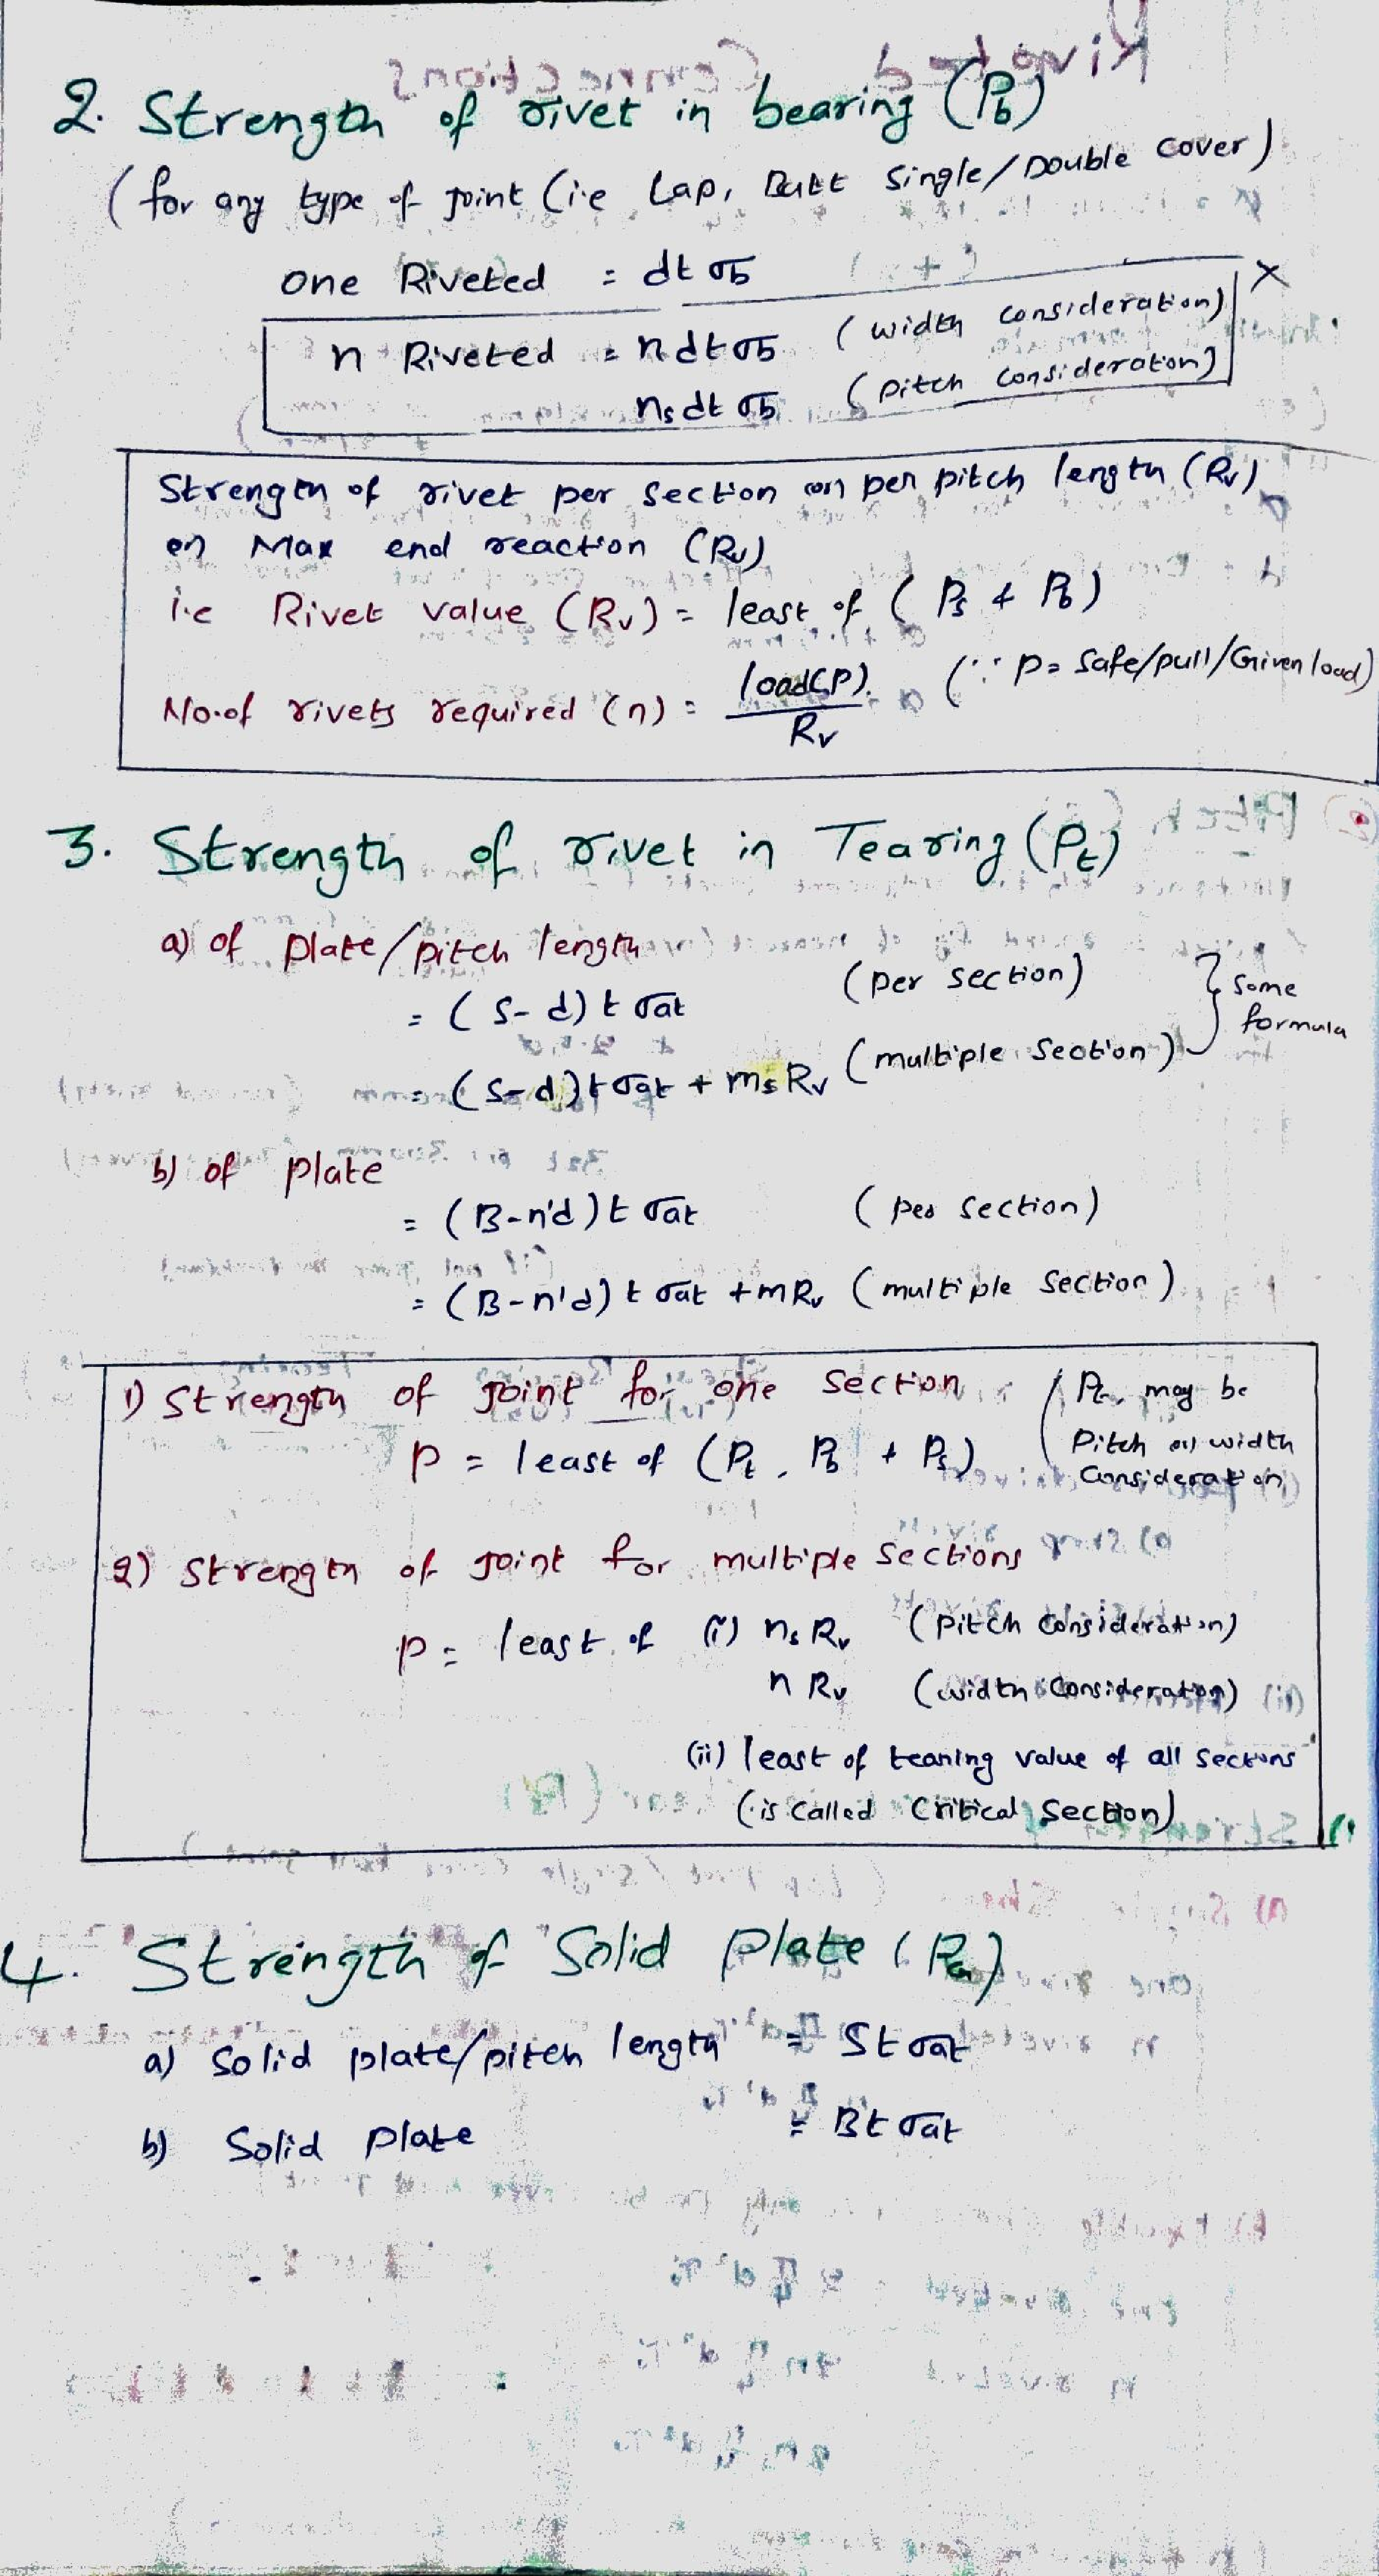 2. Strength of rivet in bearing (Pb)
(for any type of joint (i.e Lap, Butt Single/Double cover)
one Riveted = dt σb
n Riveted = n dt σb (width consideration) x
ns dt σb (pitch consideration)
Strength of rivet per section (or) per pitch length (Rv)
Max end reaction (Rv)
i.e Rivet value (Rv) = least of (Ps & Pb)
No.of rivets required (n) = load(P) / Rv (∵ P = Safe/pull/Given load)
3. Strength of rivet in Tearing (Pt)
a) of plate/pitch length
= (S-d) t σat (per section) } Some formula
= (S-d) t σat + ms Rv (multiple Section)
b) of plate
= (B-n'd) t σat (per section)
= (B-n'd) t σat + m Rv (multiple Section)
1) Strength of joint for one section (Pt, may be
P = least of (Pt, Pb & Ps) Pitch (or) width
Consideration
2) Strength of joint for multiple Sections
P = least of (i) ns Rv (pitch consideration)
n Rv (width Consideration)
(ii) least of tearing value of all sections
(is called Critical Section)
4. Strength of Solid plate (Pa)
a) Solid plate/pitch length = St σat
b) Solid plate = Bt σat